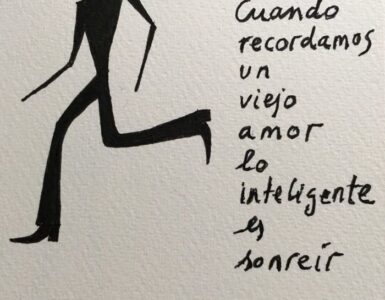 Cuando
recordamos
un
viejo
amor
lo
inteligente
es
sonreír